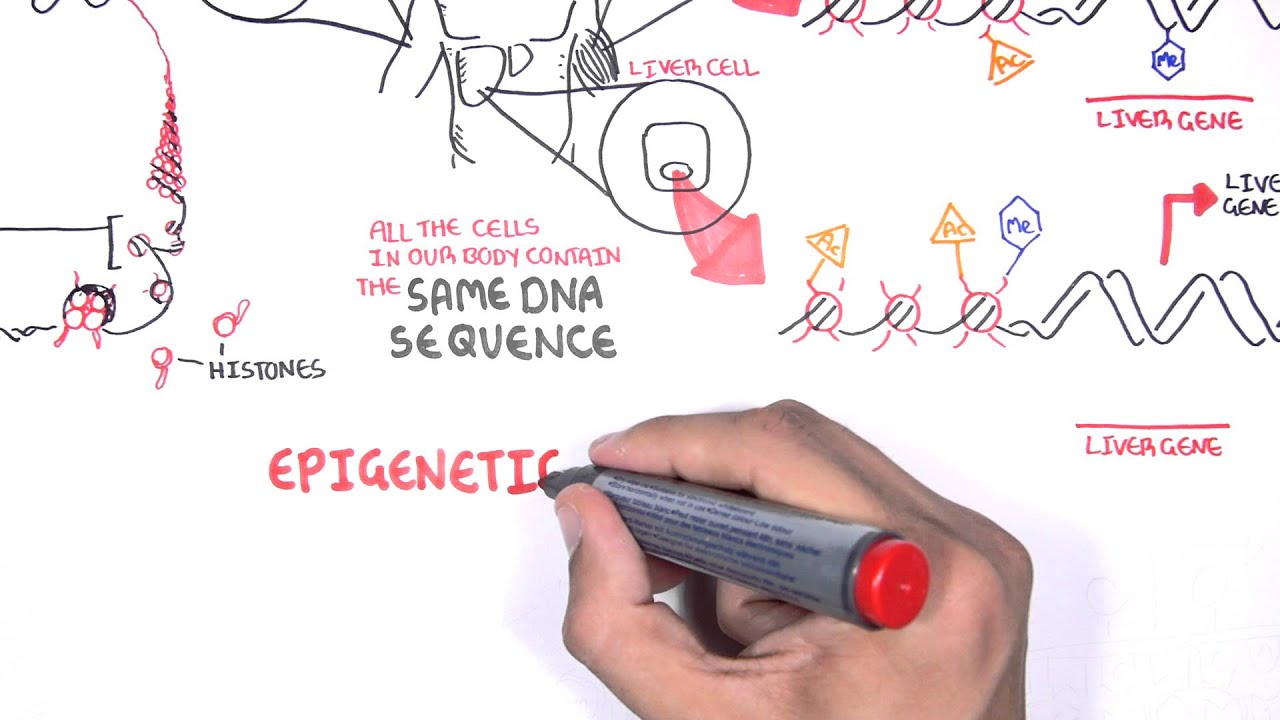 LIVER CELL
Ac
Me
LIVER GENE
LIVE
GENE
Ac
Ac
Me
ALL THE CELLS
IN OUR BODY CONTAIN
THE SAME DNA
SEQUENCE
HISTONES
EPIGENETIC
LIVER GENE